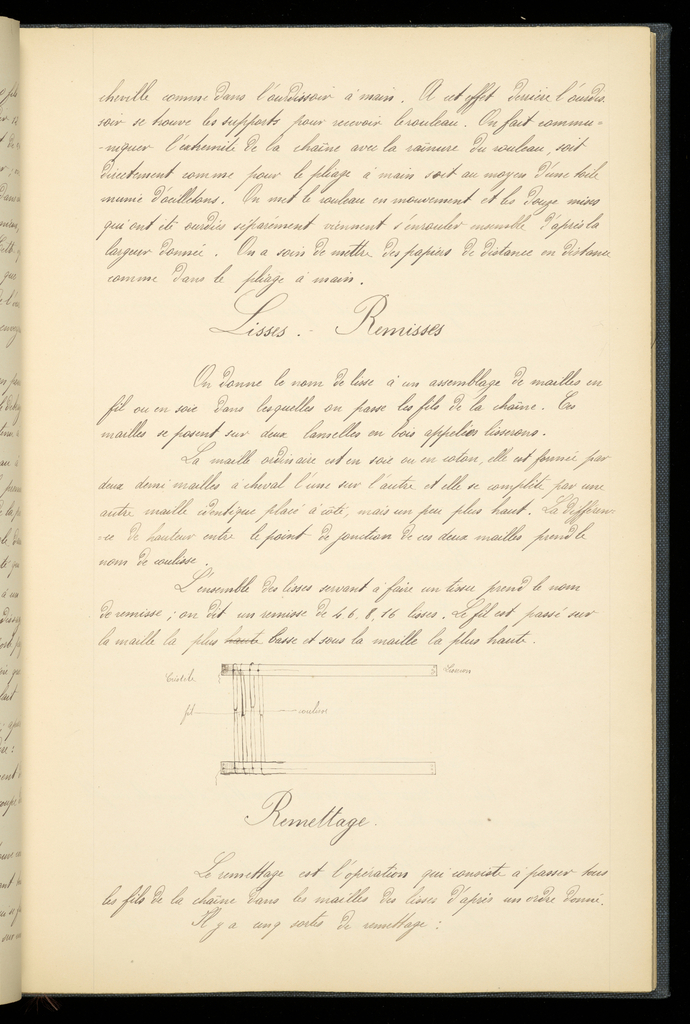 cheville comme dans l'ourdissoir à main. A cet effet derrière l'ourdis
soir se trouve les supports pour recevoir le rouleau. On fait commu-
-niquer l'extremité de la chaîne avec la rainure du rouleau, soit
directement comme pour le pliage à main soit au moyen d'une toile
munie d'oeilletons. On met le rouleau en mouvement et les douze mises
qui ont été ourdies séparément viennent s'enrouler ensemble d'après la
largeur donnée. On a soin de mettre des papiers de distance en distance
comme dans le pliage à main.
Lisses. - Remisses
On donne le nom de lisse à un assemblage de mailles en
fil ou en soie dans lesquelles on passe les fils de la chaîne. Ces
mailles se posent sur deux lamelles en bois appelées lisserons.
La maille ordinaire est en soie ou en coton, elle est formée par
deux demi mailles à cheval l'une sur l'autre et elle se complète par une
autre maille identique placé à côté, mais un peu plus haut. La différen-
-ce de hauteur entre le point de jonction de ces deux mailles prend le
nom de coulisse.
L'ensemble des lisses servant à faire un tissu prend le nom
de remisse ; on dit un remisse de 4 6, 8, 16 lisses. Le fil est passé sur
la maille la plus haute basse et sous la maille la plus haute.
fil coulisse
Remettage.
Le remettage est l'opération qui consiste à passer tous
les fils de la chaîne dans les mailles des lisses d'après un ordre donné.
Il y a cinq sortes de remettage :